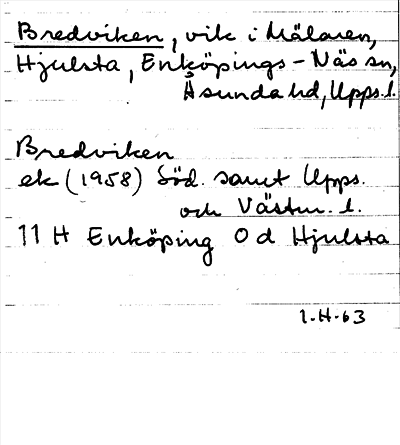 Bredviken, vik i Mälaren,
Hjulsta, Enköpings-Näs sn,
Åsunda hd, Upps. l.
Bredviken
ek (1958) Söd. samt Upps.
och Västm. l.
11 H Enköping 0 d Hjulsta
1-H-63